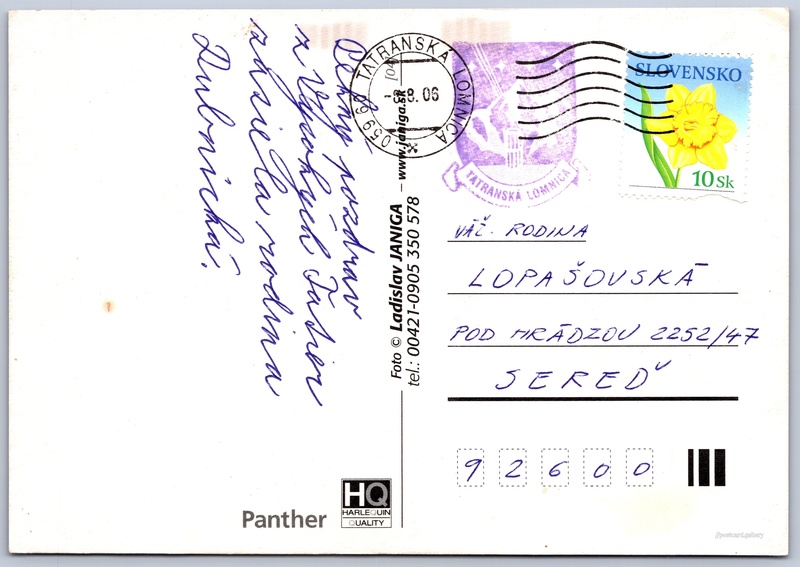 Pekný pozdrav
z Vysokých Tatier
zasiela rodina
Dubnická.
059 60 TATRANSKÁ LOMNICA
8.06
TATRANSKÁ LOMNICA
SLOVENSKO
10 Sk
VÁŽ. RODINA
LOPAŠOVSKÁ
POD HRÁDZOU 2252/47
SEREĎ
92600
Foto © Ladislav JANIGA – www.janiga.sk
tel.: 00421-0905 350 578
Panther
HQ
HARLEQUIN
QUALITY
@postcard.gallery